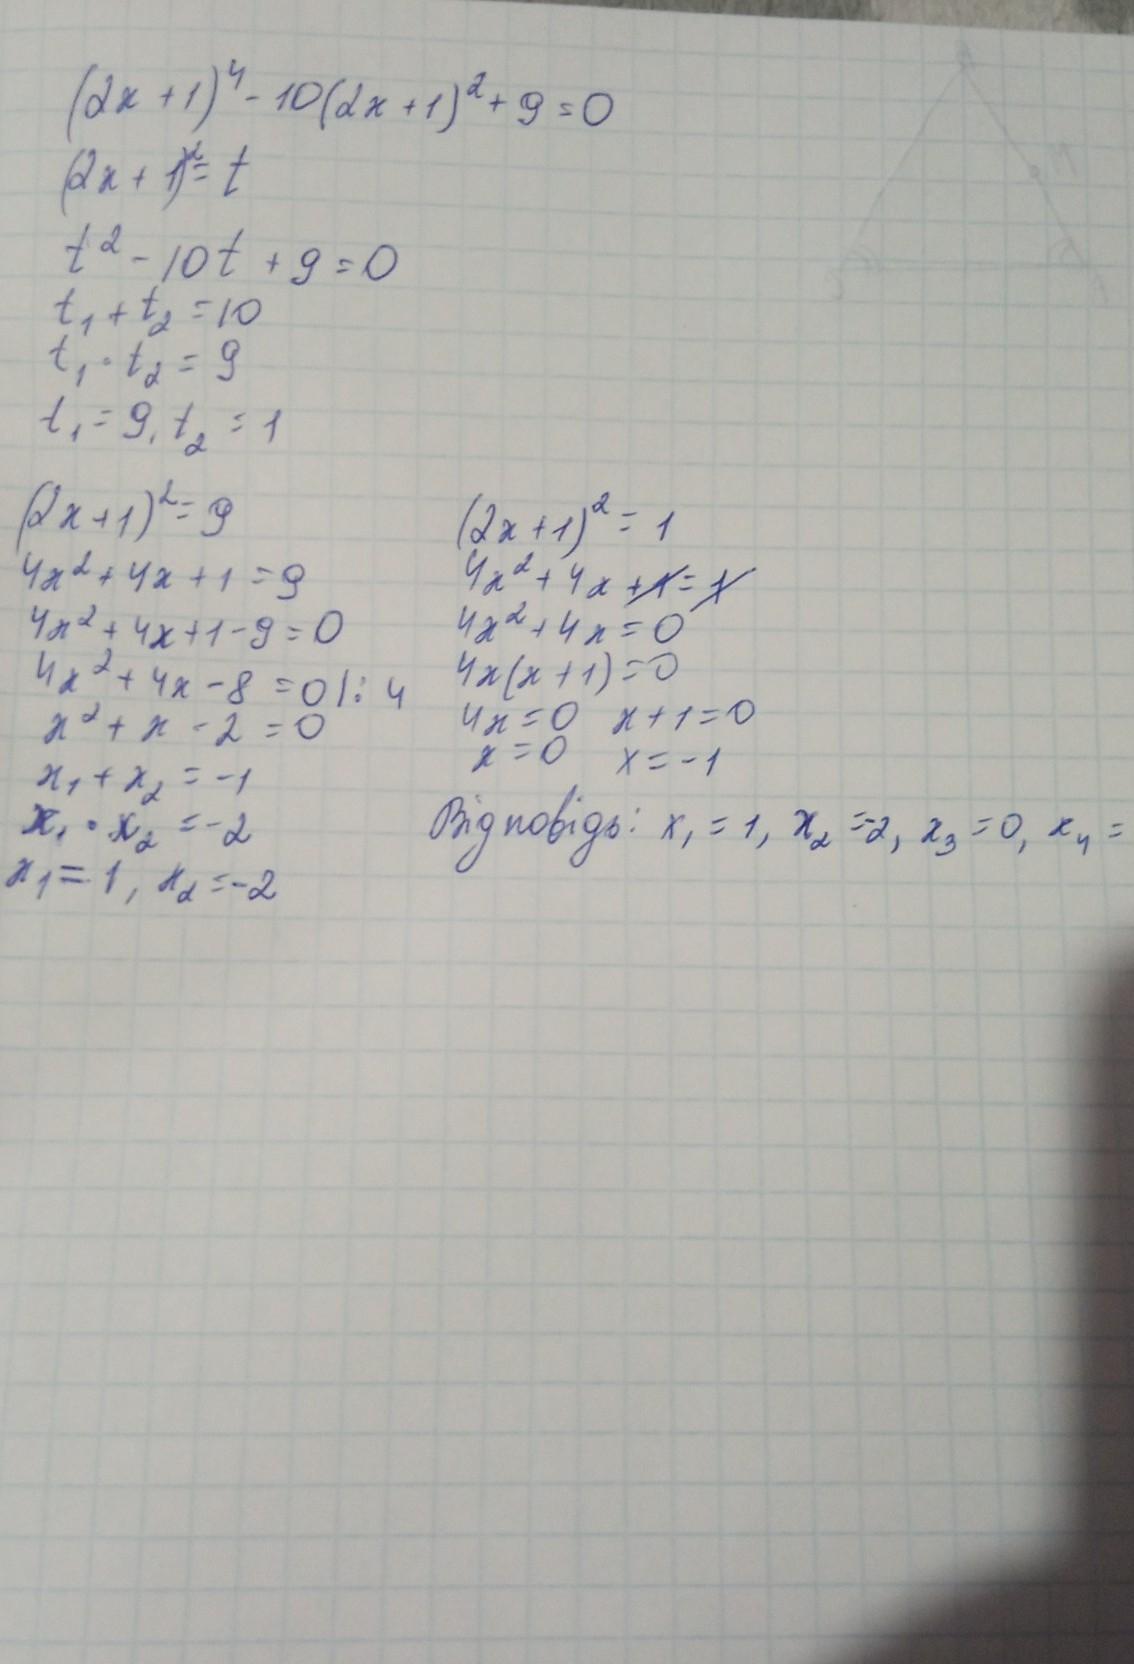 (2x+1)⁴-10(2x+1)²+9=0
(2x+1)²=t
t²-10t+9=0
t₁+t₂=10
t₁·t₂=9
t₁=9, t₂=1
(2x+1)²=9
4x²+4x+1=9
4x²+4x+1-9=0
4x²+4x-8=0|:4
x²+x-2=0
x₁+x₂=-1
x₁·x₂=-2
x₁=1, x₂=-2
(2x+1)²=1
4x²+4x+1=1
4x²+4x=0
4x(x+1)=0
4x=0 x+1=0
x=0 x=-1
Відповідь: x₁=1, x₂=-2, x₃=0, x₄=